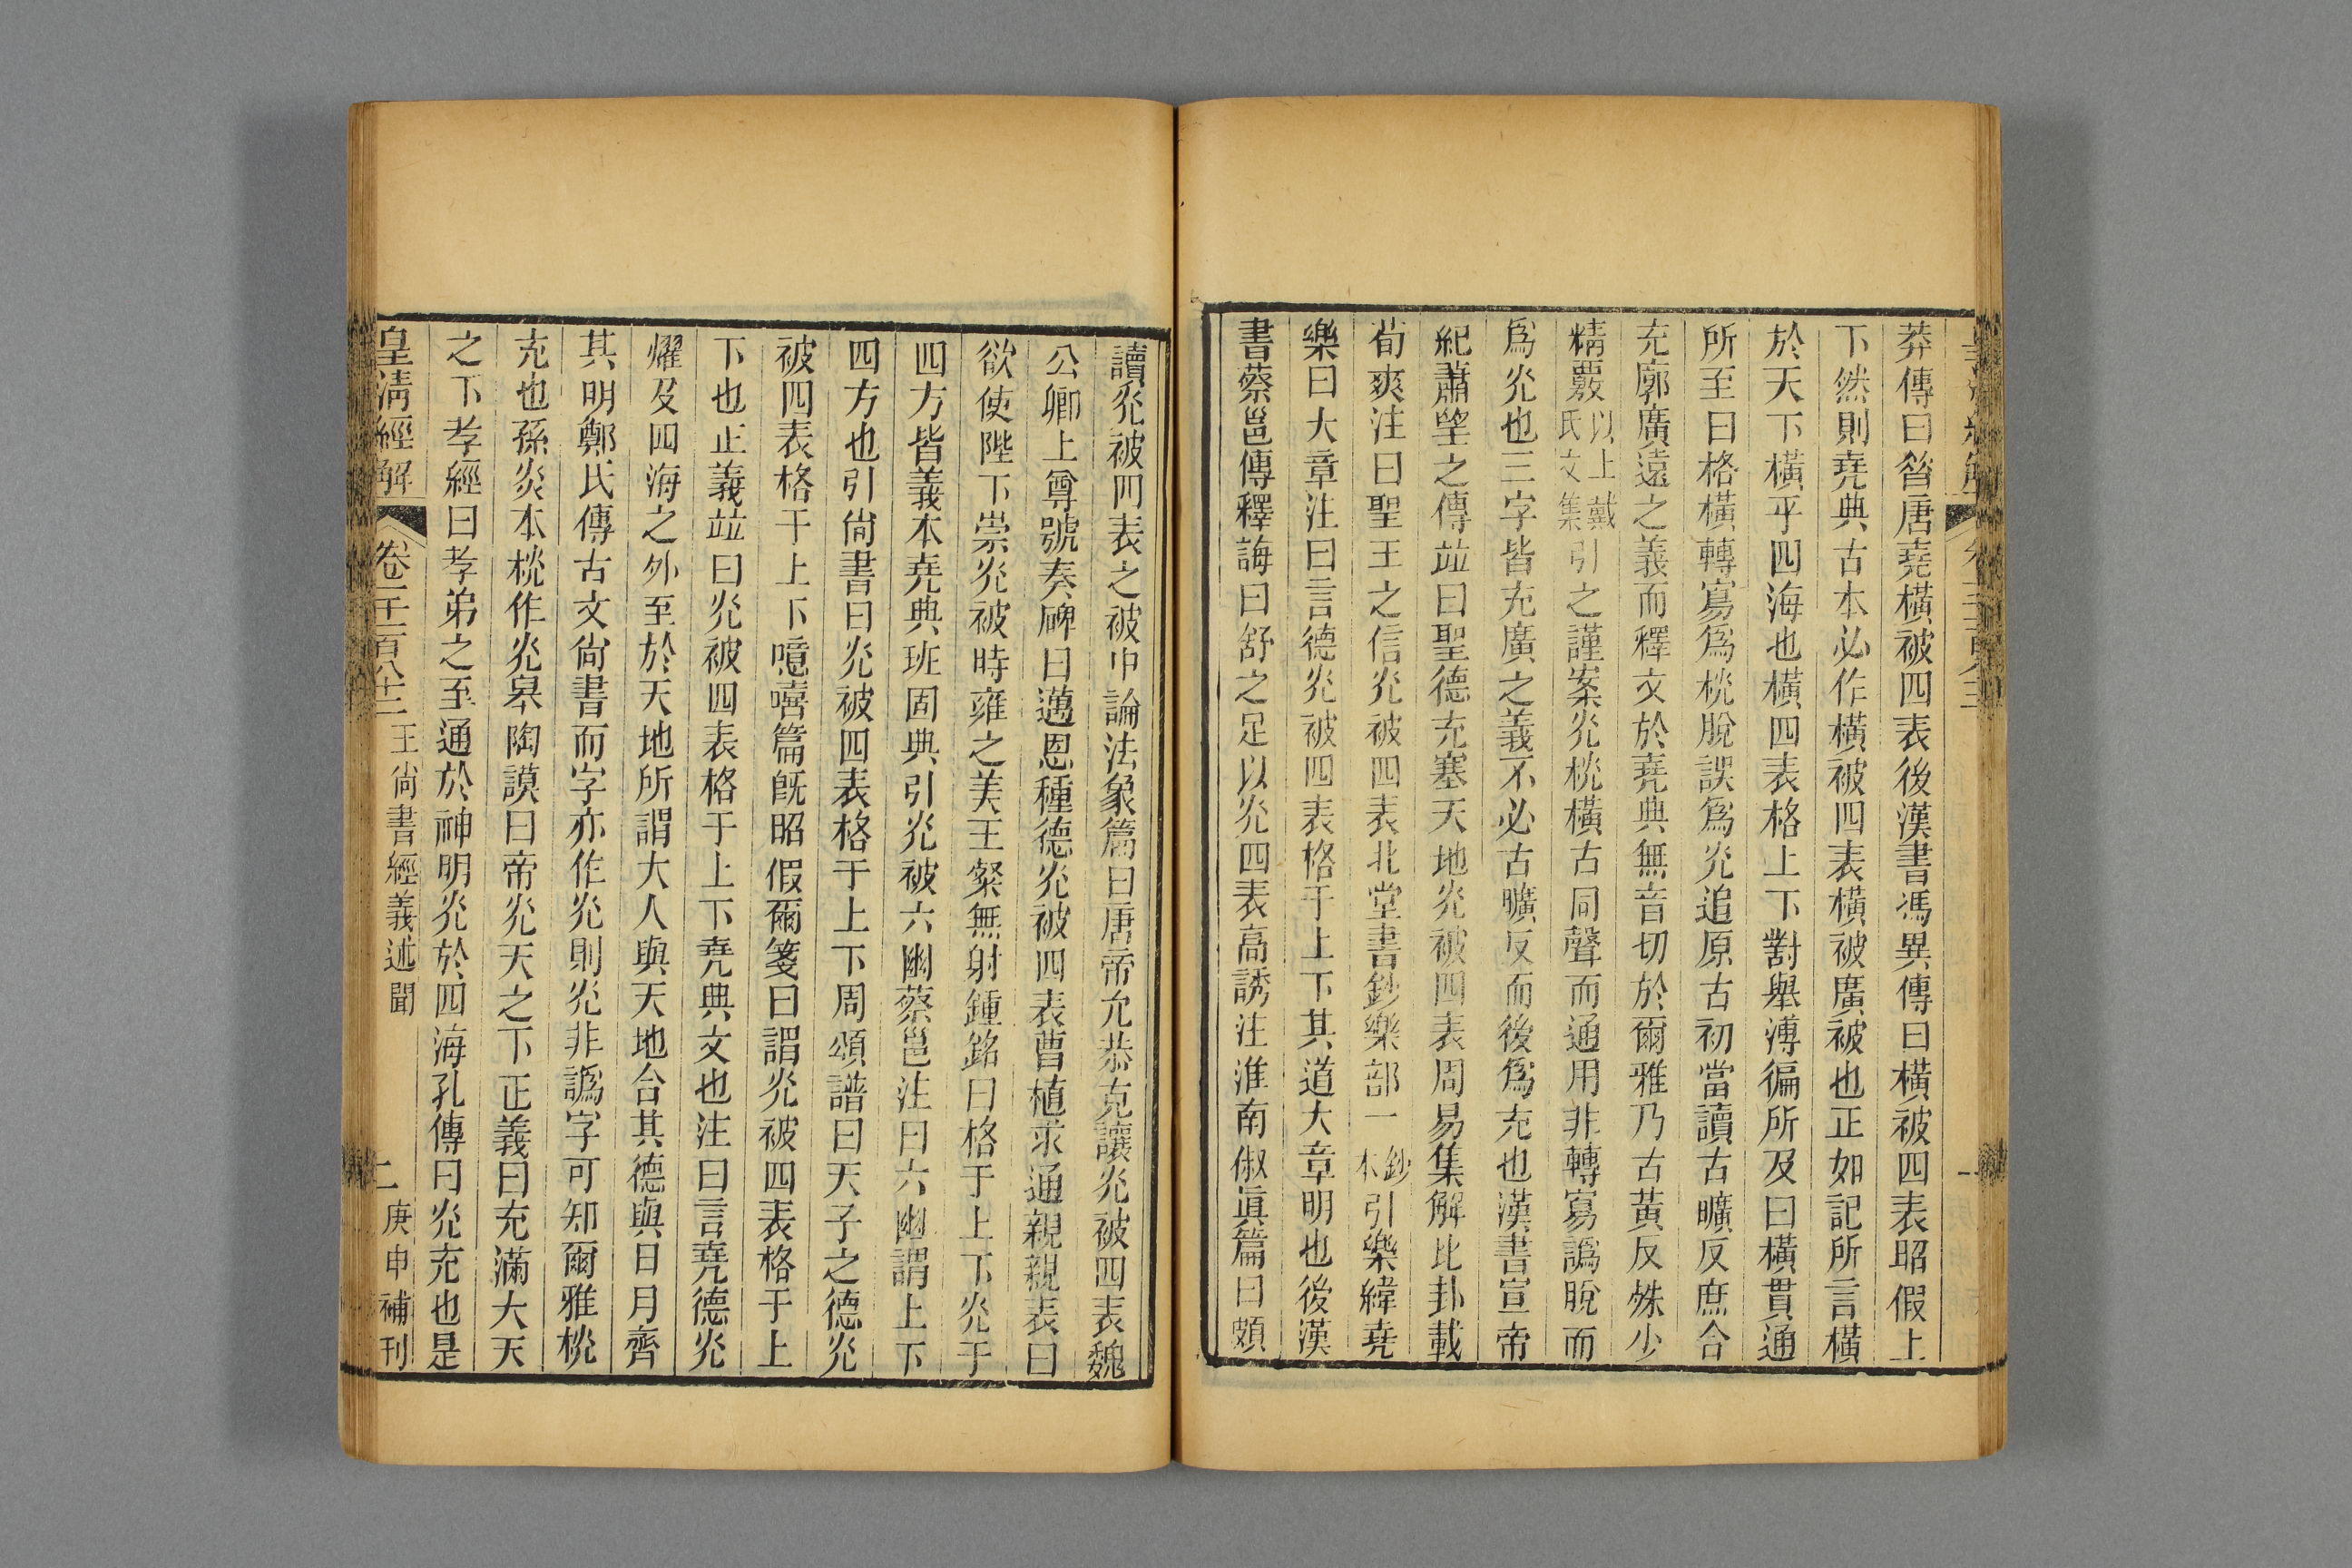 莽傳曰昔唐堯橫被四表後漢書馮異傳曰橫被四表昭假上
下然則堯典古本必作橫被四表橫被廣被也正如記所言橫
於天下橫乎四海也橫四表格上下對舉溥徧所及曰橫貫通
所至曰格橫轉寫爲桄脫誤爲灮追原古初當讀古曠反庶合
充廓廣遠之義而釋文於堯典無音切於爾雅乃古黃反殊少
精覈以上戴氏文集引之謹案灮桄橫古同聲而通用非轉寫譌脫而
爲灮也三字皆充廣之義不必古曠反而後爲充也漢書宣帝
紀蕭望之傳竝曰聖德充塞天地灮被四表周易集解比卦載
荀爽注曰聖王之信灮被四表北堂書鈔樂部一鈔本引樂緯堯
樂曰大章注曰言德灮被四表格于上下其道大章明也後漢
書蔡邕傳釋誨曰舒之足以灮四表高誘注淮南俶眞篇曰頗
讀灮被四表之被中論法象篇曰唐帝允恭克讓灮被四表魏
公卿上尊號奏碑曰邁恩種德灮被四表曹植求通親親表曰
欲使陛下崇灮被時雍之美王粲無射鍾銘曰格于上下灮于
四方皆義本堯典班固典引灮被六幽蔡邕注曰六幽謂上下
四方也引尙書曰灮被四表格于上下周頌譜曰天子之德灮
被四表格于上下噫嘻篇旣昭假爾箋曰謂灮被四表格于上
下也正義竝曰灮被四表格于上下堯典文也注曰言堯德灮
燿及四海之外至於天地所謂大人與天地合其德與日月齊
其明鄭氏傳古文尙書而字亦作灮則灮非譌字可知爾雅桄
充也孫炎本桄作灮皋陶謨曰帝灮天之下正義曰充滿大天
之下孝經曰孝弟之至通於神明灮於四海孔傳曰灮充也是
皇清經解 卷一千一百八十二 王尙書經義述聞 二 庚申補刊